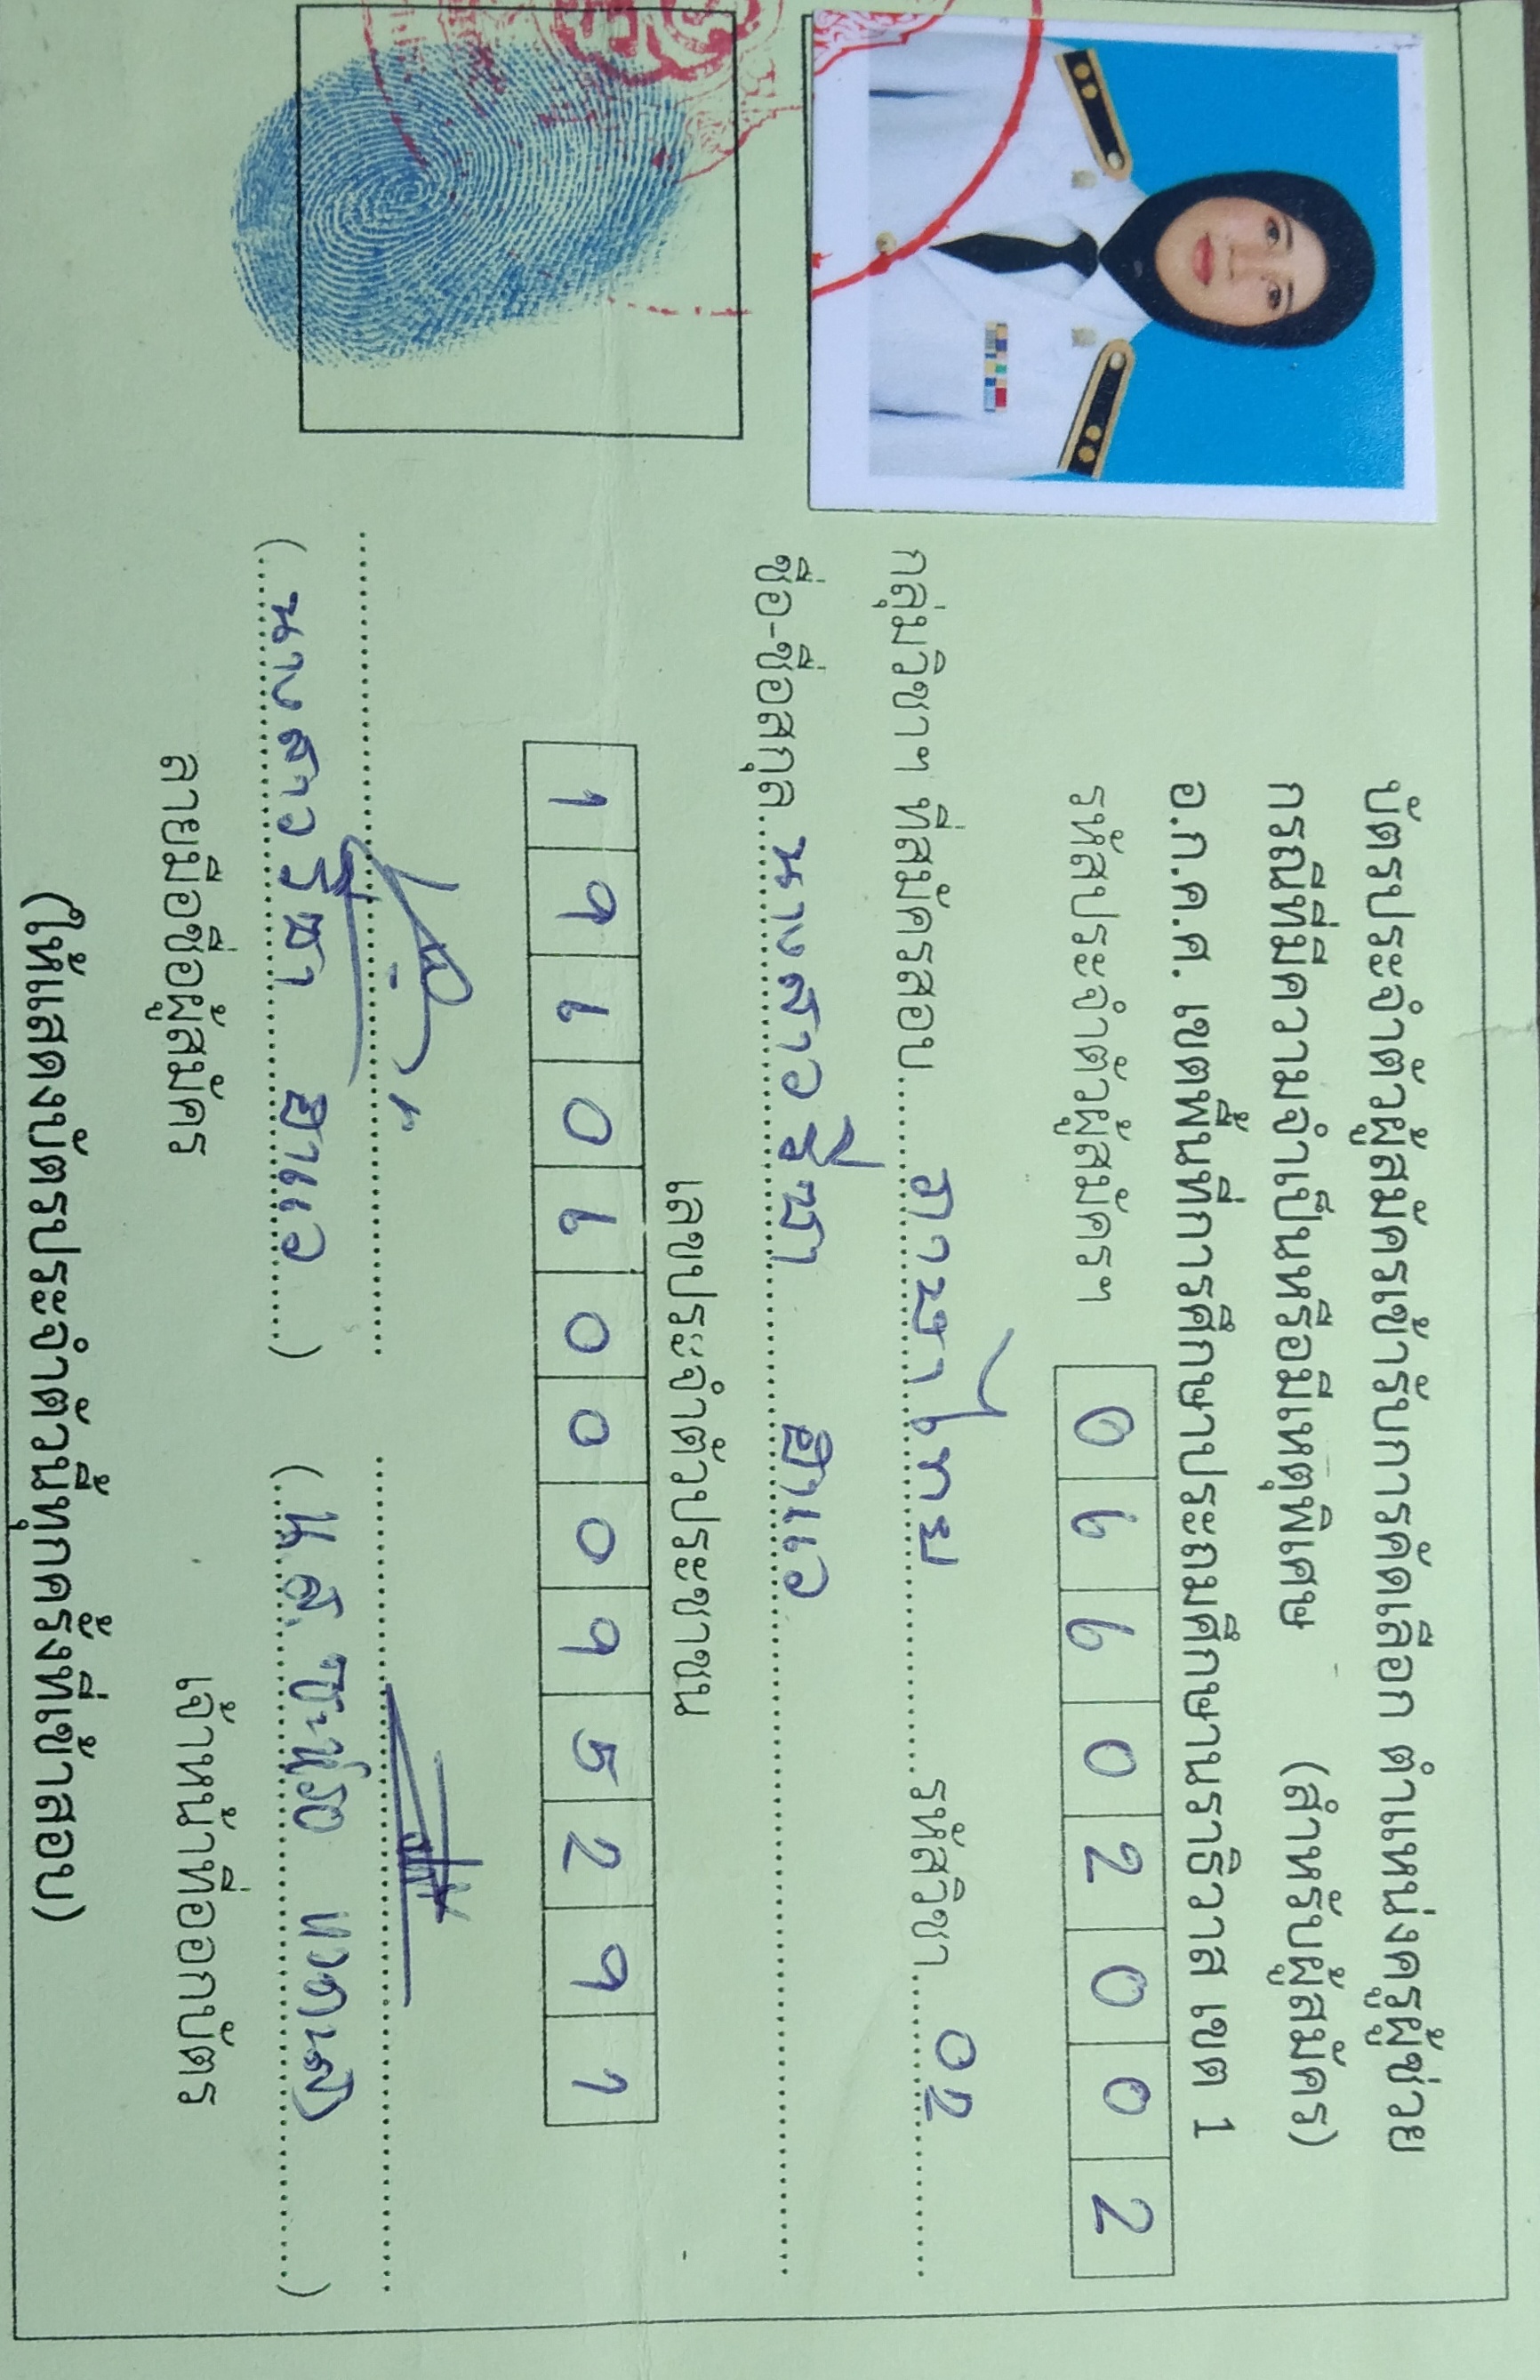 บัตรประจำตัวผู้สมัครเข้ารับการคัดเลือก ตำแหน่งครูผู้ช่วย
กรณีที่มีความจำเป็นหรือมีเหตุพิเศษ (สำหรับผู้สมัคร)
อ.ก.ค.ศ. เขตพื้นที่การศึกษาประถมศึกษานราธิวาส เขต 1
รหัสประจำตัวผู้สมัครฯ 0 6 6 0 2 0 0 2
กลุ่มวิชาฯ ที่สมัครสอบ ภาษาไทย รหัสวิชา 02
ชื่อ-ชื่อสกุล นางสาว ยามา
เลขประจำตัวประชาชน
1 9 6 0 6 0 0 0 9 5 2 9 1
(นางสาว)
ลายมือชื่อผู้สมัคร เจ้าหน้าที่ออกบัตร
(ให้แสดงบัตรประจำตัวนี้ทุกครั้งที่เข้าสอบ)